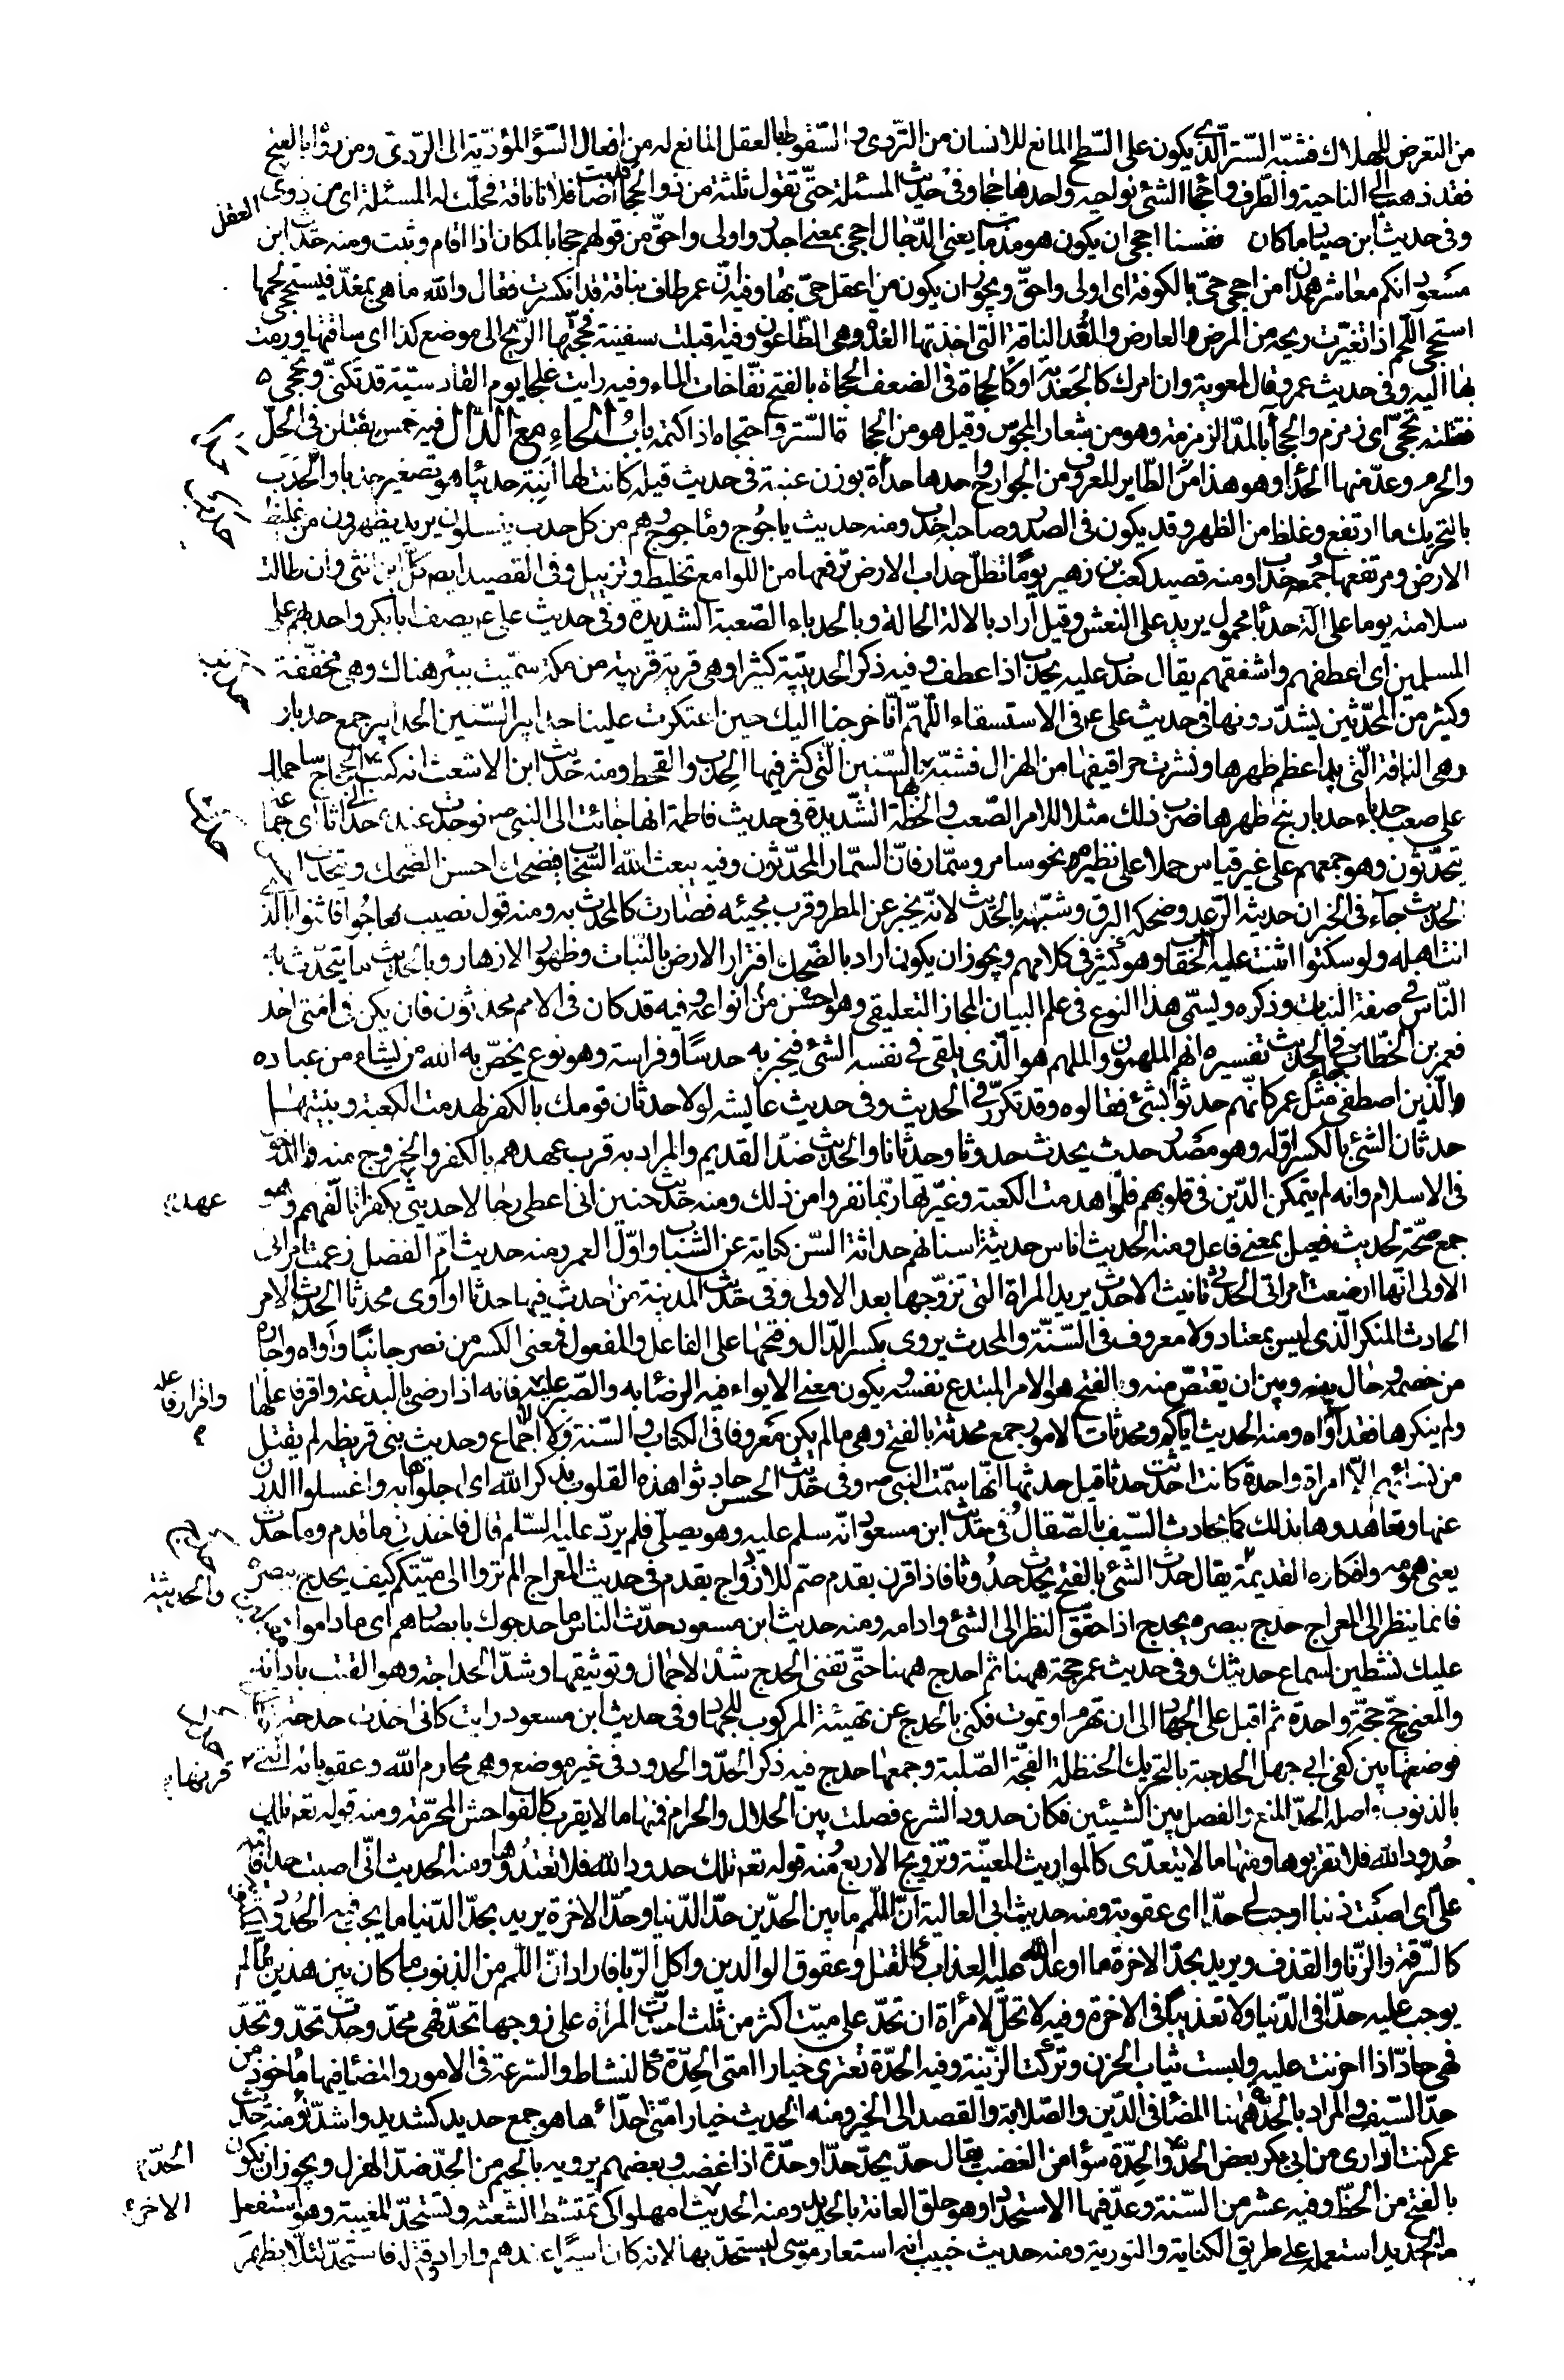 من التعرض للهلاك فشبّه السّتر الّذى يكون على السّطح المانع للانسان من التّردى والسّقوط بالعقل المانع له من افعال السّوء المؤدّية الى الرّدى ومن رواه بالفتح
فقد ذهب الى الناحية والطّرف واحجاء الشئ نواحيه واحدها حجا وفى حديث المسئلة حتّى تقول ثلثة من ذوى الحجا قد اصابت فلانا فاقة فحلّت له المسئلة اى من ذوى العقل
وفى حديث ابن صياد ما كان فى نفسنا احجى ان يكون هو مذ مات يعنى الدّجال احجى بمعنى اجدر واولى واحقّ من قولهم حجا بالمكان اذا اقام وثبت ومنه حديث ابن
مسعود انكم معاشر همدان من احجى حىّ بالكوفة اى اولى واحقّ ويجوز ان يكون من اعقل حىّ بها وفيه انّ عمر طاف بناقة قد انكسرت فقال والله ما هى بمغدّ فيستحجى لحمها
استحجى اللّحم اذا تغيّرت ريحه من المرض العارض والمُغدّ الناقة التى اخذتها الغدة وهى الطّاعون وفيه اقبلت سفينة فحجتها الرّيح الى موضع كذا اى ساقتها ورمت
بها اليه وفى حديث عمرو قال لمعوية وان امرك كالجعدبة او كالحجاة فى الضعف الحجاة بالفتح نفّاخات الماء وفيه رايت علجا يوم القادسيّة قد تكنّى وتحجّى
فقتلته تحجّى اى زمزم والحجاء بالمدّ الزمزمة وهو من شعار المجوس وقيل هو من الحجا السّتر واحتجاه اذا كتمه باب الحاء مع الدّال فيه خمس يقتلن فى الحلّ
والحرم وعدّ منها الحدأ وهو هذا الطّاير المعروف من الجوارح واحدها حدأة بوزن عنبة فى حديث قيلة كانت لها ابنة حديباء هو تصغير حدباء والحدب
بالتحريك ما ارتفع وغلظ من الظهر وقد يكون فى الصدر وصاحبه احدب ومنه حديث ياجوج وماجوج وهم من كل حدب ينسلون يريد يظهرون من غليظ
الارض ومرتفعها وجمعه حداب ومنه قصيد كعب بن زهير يومًا تظلّ حداب الارض ترفعها من اللوامع تخليط وتزييل وفى القصيد ايضا كلّ ابن انثى وان طالت
سلامته يوما على آلة حدباء محمول يريد على النعش وقيل اراد بالالة الحالة وبالحدباء الصّعبة الشديدة وفى حديث على ع يصف ابا بكر واحدبهم على
المسلمين اى اعطفهم واشفقهم يقال حدب عليه يحدب اذا عطف وفيه ذكر الحديبية كثيرا وهى قرية قريبة من مكة سمّيت ببئر هناك وهى مخفّفة
وكثير من المحدّثين يشدّدونها فى حديث على ع فى الاستسقاء اللّهمّ انّا خرجنا اليك حين اعتكرت علينا حدابير السّنين الحدابير جمع حدبار
وهى الناقة الّتى بدا عظم ظهرها ونشزت حراقيفها من الهزال فشبّه بها السّنين الّتى كثر فيها الجدب والقحط ومنه حديث ابن الاشعث انه كتب الى الحجاج ساحملك
على صعب حدباء حدبار ينجّ ظهرها ضرب ذلك مثلا للامر الصّعب والخطّة الشّديدة فى حديث فاطمة انها جائت الى النبى ص فوجدت عنده حدّاثا اى جماعة
يتحدّثون وهو جمعهم على غير قياس حملا على نظيره نحو سامر وسمّار فانّ السمّار المحدّثون وفيه يبعث الله السّحاب فيضحك احسن الضحك ويتحدّث احسن
الحديث جاء فى الخبر ان حديثه الرّعد وضحكه البرق وشبّهه بالحديث لانّه يخبر عن المطر وقرب مجيئه فصار كالمحدث به ومنه قول نصيب فعاجوا فاثنوا بالّذى
انت اهله ولو سكتوا اثنت عليك الحقايب وهو كثير فى كلامهم ويجوز ان يكون اراد بالضّحك افترار الارض بالنّبات وظهور الازهار وبالحديث ما يتحدّث به
النّاس فى صفة النبات وذكره ويسمّى هذا النوع فى علم البيان المجاز التعليقى وهو احسن من انواعه وفيه قد كان فى الامم محدّثون فان يكن فى امّتى احد
فعمر بن الخطّاب جاء فى الحديث تفسيره انهم الملهمون والملهم هو الّذى يلقى فى نفسه الشئ فيخبر به حدسًا وفراسة وهو نوع يخصّ به الله من يشاء من عباده
الّذين اصطفى مثل عمر كانّهم حدثوا بشئ فقالوه وقد تكرّر فى الحديث وفى حديث عايشه لولا حدثان قومك بالكفر لهدمت الكعبة وبنيتها
حدثان الشّئ بالكسر اوّله وهو مصدر حدث يحدث حدوثا وحدثانا والحديث ضدّ القديم والمراد به قرب عهدهم بالكفر والخروج منه والدّخول
فى الاسلام وانه لم يتمكن الدّين فى قلوبهم فلو هدمت الكعبة وغيّرتها ربّما نفروا من ذلك ومنه حديث حنين انى اعطى رجالا حديثى عهد بكفر اتالّفهم وهو
جمع صحّة لحديث فعيل بمعنى فاعل ومنه الحديث اناس حديثة اسنانهم حداثة السّن كناية عن الشباب واوّل العمر ومنه حديث امّ الفضل زعمت امراتى
الاولى انّها ارضعت امراتى الحدثى تانيث الاحدث يريد المراة التى تزوّجها بعد الاولى وفى حديث المدينة من احدث فيها حدثا او آوى محدثا الحدث الامر
الحادث المنكر الّذى ليس بمعتاد ولا معروف فى السّنّة والمحدث يروى بكسر الدّال وفتحها على الفاعل والمفعول فمعنى الكسر من نصر جانيًا وآواه واجاره
من خصمه وحال بينه وبين ان يقتصّ منه والفتح هو الامر المبتدع نفسه ويكون معنى الايواء فيه الرضا به والصّبر عليه فانه اذا رضى بالبدعة واقر فاعلها
ولم ينكرها فقد آواه ومنه الحديث اياكم ومحدثات الامور جمع محدثة بالفتح وهى ما لم يكن معروفا فى الكتاب والسّنة ولا اجماع وحديث بنى قريظه لم يقتل
من نسائهم الّا امراة واحدة كانت احدثت حدثا قيل حدثها انّها سمّت النبى ص وفى حديث الحسن حادثوا هذه القلوب بذكر الله اى اجلوها به واغسلوا الدرن
عنها وتعاهدوها بذلك كما تحادث السّيف بالصّقال وفى حديث ابن مسعود انّه سلم عليه وهو يصلّى فلم يردّ عليه السّلم قال فاخذنى ما قدم وما حدث
يعنى همومه وافكاره القديمة والحديثة يقال حدث الشئ بالفتح يحدث حدُوثا فاذا قرن بقدم ضمّ للازدواج بقدم فى حديث المعراج الم تروا الى ميّتكم كيف يحدج ببصره
فانما ينظر الى المعراج حدج ببصره يحدج اذا حقّق النظر الى الشئ وادامه ومنه حديث ابن مسعود حدّث الناس ما حدجوك بابصارهم اى ما داموا مقبلين
عليك نشطين لسماع حديثك وفى حديث عمر حجة ههنا ثم احدج ههنا حتّى تفنى الحدج شدّ الاحمال وتوثيقها وشدّ الحداجة وهو القتب باداته
والمعنى حجّ حجّة واحدة ثم اقبل على الجهاد الى ان تهرم او تموت فكنى بالحدج عن تهيئة المركوب للجهاد وفى حديث ابن مسعود رايت كانى اخذت حدجة
فوضعتها بين كتفى ابى جهل الحدجة بالتحريك الحنظلة الفجّة الصّلبة وجمعها حدج فيه ذكر الحدّ والحدود فى غير موضع وهى محارم الله وعقوباته الّتى قرنها
بالذنوب واصل الحدّ المنع والفصل بين الشيئين فكان حدود الشرع فصلت بين الحلال والحرام فمنها ما لا يقرب كالفواحش المحرّمة ومنه قوله تعه تلك
حُدود الله فلا تقربوها ومنها ما لا يتعدّى كالمواريث المعيّنة وتزويج الاربع ومنه قوله تعه تلك حدود الله فلا تعتدوها ومنه الحديث انّى اصبت حدّا فاقمه
علىّ اى اصبت ذنبا اوجب على حدّا اى عقوبة ومنه حديث ابى العالية انّ اللّمم ما بين الحدّين حدّ الدّنيا وحدّ الاخرة يريد بحدّ الدّنيا ما يجب فيه الحُدود
كالسّرقة والزّنا والقذف ويريد بحدّ الاخرة ما اوعد الله عليه العذاب كالقتل وعقوق الوالدين واكل الرّبا فاراد انّ اللّمم من الذنوب ما كان بين هذين ممّا لم
يوجب عليه حدّا فى الدّنيا ولا تعذيبًا فى الاخرة وفيه لا تحلّ لامرأة ان تحدّ على ميّت اكثر من ثلث احدّت المراة على زوجها تحدّ فهى محدّ وحدّت تحدّ وتحدّ
فهى حادّ اذا احزنت عليه ولبست ثياب الحزن وتركت الزّينة وفيه الحدّة تعترى خيار امتى الحِدّة كالنشاط والسّرعة فى الامور والمضاء فيها ماخوذ من
حدّ السّيف والمراد بالحدّة ههنا المضاء فى الدّين والصّلابة والقصد الى الخير ومنه الحديث خيار امّتى احدّاءها هو جمع حديد كشديد واشدّاء ومنه حديث
عمر كنت اُدارى من ابى بكر بعض الحدّ الحدّ والحِدّة سواء من الغضب يقال حدّ يحدّ حدّا وحدّة اذا غضب وبعضهم يرويه بالجيم من الجدّ ضدّ الهزل ويجوز ان يكون
بالفتح من الحظّ وفيه عشر من السّنة وعدّ فيها الاستحداد وهو حلق العانة بالحديد ومنه الحديث الاخر امهلوا كى تمتشط الشعثة وتستحدّ المغيبة وهو استفعل
من الحديد استعمله على طريق الكناية والتورية ومنه حديث خبيب انه استعار موسى ليستحدّ بها لانه كان اسيرًا عندهم واراد قتله فاستحدّ لئلّا يظهر